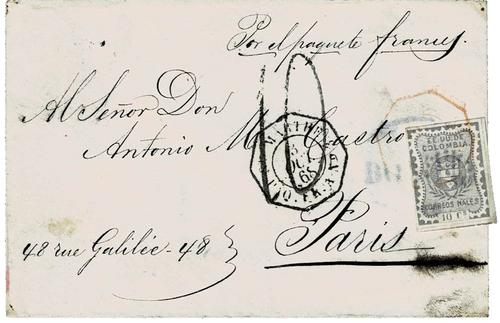 Por el paquete frances.
10
Al Señor Don
Antonio M. Castro
48 rue Galilée - 48
Paris
65
EE. UU. DE
COLOMBIA
CORREOS NALES
10 CS